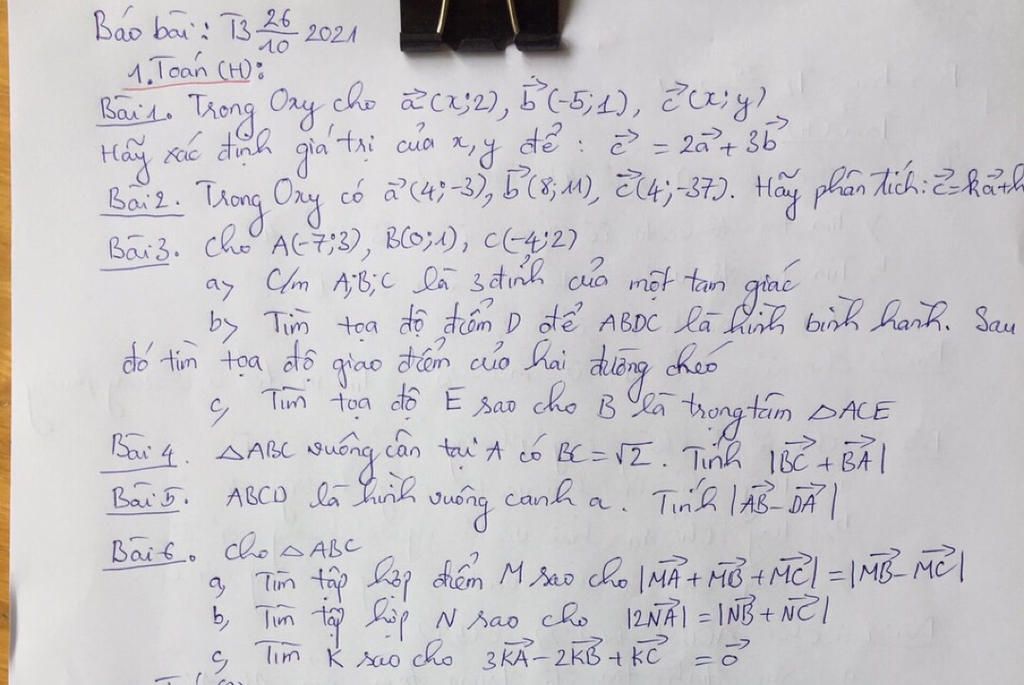 Báo bài: T3 26/10 2021
1. Toán (H):
Bài 1. Trong Oxy cho a⃗(x;2), b⃗(-5;1), c⃗(x;y)
Hãy xác định giá trị của x,y để : c⃗ = 2a⃗ + 3b⃗
Bài 2. Trong Oxy có a⃗(4;-3), b⃗(8;11), c⃗(4;-37). Hãy phân tích: c⃗=ka⃗+h
Bài 3. Cho A(-7;3), B(0;1), C(-4;2)
a, C/m A;B;C là 3 đỉnh của một tam giác
b, Tìm tọa độ điểm D để ABDC là hình bình hành. Sau
đó tìm tọa độ giao điểm của hai đường chéo
c, Tìm tọa độ E sao cho B là trọng tâm △ACE
Bài 4. △ABC vuông cân tại A có BC = √2. Tính |BC⃗ + BA⃗|
Bài 5. ABCD là hình vuông cạnh a. Tính |AB⃗ - DA⃗|
Bài 6. Cho △ABC
a, Tìm tập hợp điểm M sao cho |MA⃗ + MB⃗ + MC⃗| = |MB⃗ - MC⃗|
b, Tìm tập hợp N sao cho |2NA⃗| = |NB⃗ + NC⃗|
c, Tìm K sao cho 3KA⃗ - 2KB⃗ + KC⃗ = 0⃗